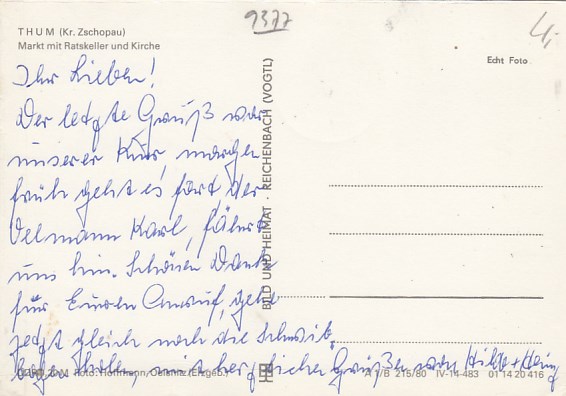 9377
4,-
THUM (Kr. Zschopau)
Markt mit Ratskeller und Kirche
Echt Foto
Ihr Lieben!
Der letzte Gruß vor
unserer Kur, morgen
früh geht es fort, der
Oelmann Karl, fährt
uns hin. Schönen Dank
für Euren Anruf, gehe
jetzt gleich noch die Schwib.
bögen holen, mit herzlichen Grüßen von Hilde + Heinz
BILD UND HEIMAT · REICHENBACH (VOGTL)
Foto: Hoffmann, Oelsnitz (Erzgeb.)
A 1/B 215/80 IV-14-483 01 14 20 416